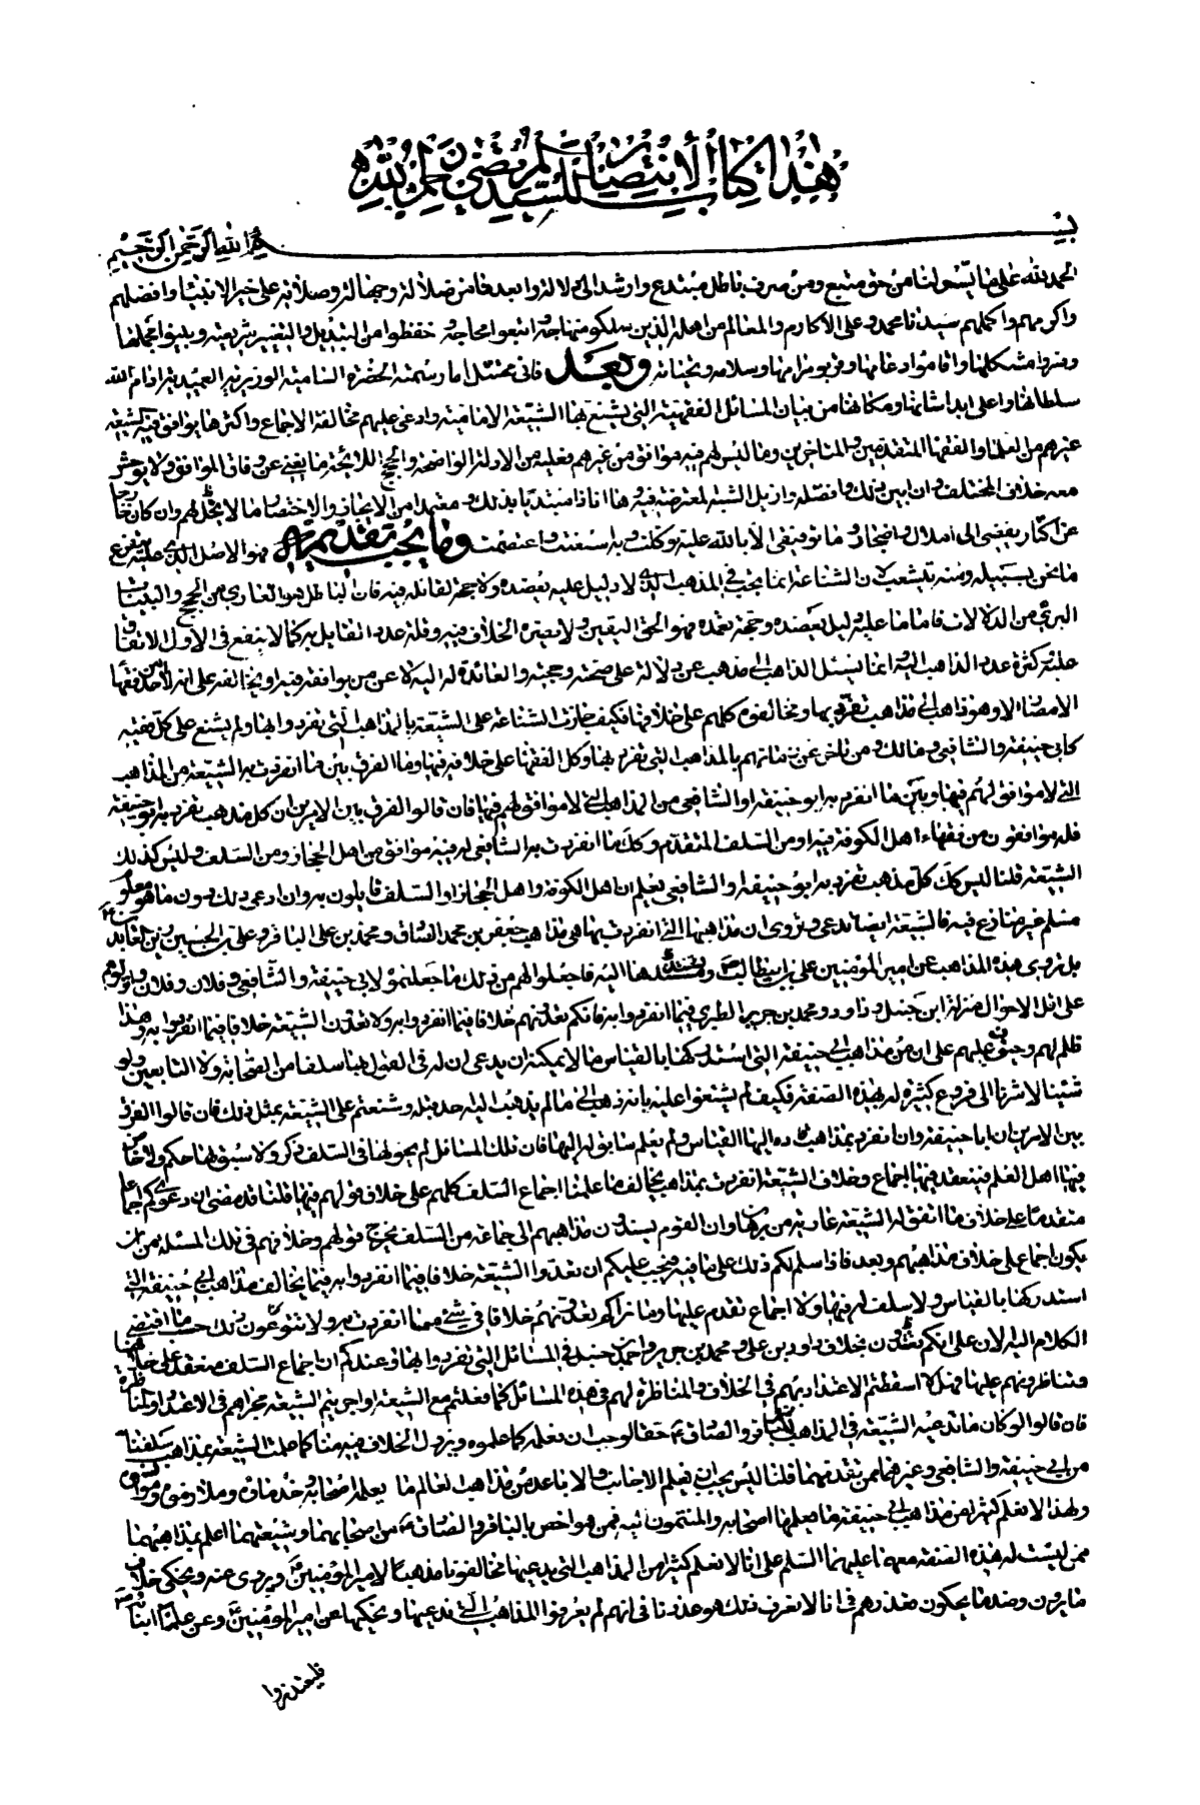 هذا كتاب الانتصار للسيد المرتضى رحمه الله
بسم الله الرحمن الرحيم
الحمد لله على ما يسر لنا من حق متبع ومن صرف باطل مبتدع وارشد الى دلالة وابعد فا من ضلالة وجهالة وصلاته على خير الانبياء وافضلهم
واكرمهم واكملهم سيدنا محمد وعلى الاكارم والمعالم من اهله الذين سلكو منهاجه واتبعوا محاجه وحفظوا من التبديل والتغيير شريعته وبينوا مجملها
وفسروا مشكلها واقاموا دعائمها وقربو مرامها وسلامه وتحياته وبعد فانى ممتثل ما رسمته الحضرة السامية الوزيرية العميدية ادام الله
سلطانها واعلى ابدا شانها ومكانها من بيان المسائل الفقهية التى يشنع بها الشيعة الامامية وادعى عليهم مخالفة الاجماع واكثرها يوافق فيه الشيعة
غيرهم من العلماء والفقهاء المتقدمين والمتاخرين وما ليس لهم فيه موافق من غيرهم فعليه من الادلة الواضحة والحجج اللائحة ما يغنى عن وفاق الموافق ولا يوحش
معه خلاف المختلف وان ابين ذلك وافصله وازيل الشبه المعترضة فيه وها انا ذا مبتدئا بذلك ومعتمدا من الايجاز والاختصار ما لا يخل بفهم وان كان خارجا
عن اكثار يفضى الى املال واضجار وما توفيقى الا بالله عليه توكلت وبه استعنت واعتصمت ومما يجب تقديمه فهو الاصل الذى عليه يتفرع
ما نحن بسبيله ومنه يتشعب لان الشناعة انما يجب فى المذهب الذى لا دليل عليه يعضده ولا حجة لقائله فيه فان الباطل هو العارى من الحجج والبينات
البرى من الدلالات فاما ما عليه دليل يعضده وحجة تعمده فهو الحق اليقين ولا يضره الخلاف فيه وقلة عدد القايل به كما لا ينفع فى الاول الاتفاق
عليه كثرة عدد الذاهب اليه وانما يسئل الذاهب الى مذهب عن دلالة على صحته وحجته والقائدة له اليه لا عن من يوافقه فيه او يخالفه على انه لا احد من فقهاء
الامصار الا وهو ذاهب الى مذاهب تفرد بها ومخالفوه كلهم على خلافها فكيف جازت الشناعة على الشيعة بالمذاهب التى تفردوا بها ولم يشنع على كل فقيه
كابى حنيفة والشافعى ومالك ومن تاخر عن زمانهم بالمذاهب التى تفرد بها وكل الفقهاء على خلافه فيها وما الفرق بين ما انفردت به الشيعة من المذاهب
التى لا موافق لهم فيها وبين ما انفرد به ابو حنيفة او الشافعى من المذاهب التى لا موافق لهم فيها فان قالوا الفرق بين الامرين ان كل مذهب تفرد به ابو حنيفة
فله موافقون من فقهاء اهل الكوفة فيه او من السلف المتقدم وكك ما انفردت به الشافعى له فيه موافق من اهل الحجاز ومن السلف وليس كذلك
الشيعة قلنا ليس كك كل مذهب تفرد به ابو حنيفة والشافعى يعلم ان اهل الكوفة او اهل الحجاز او السلف قايلون به وان ادعى ذلك دون ما هو معلوم
مسلم غير متنازع فيه فالشيعة ايضا تدعى وتروى ان مذاهبها التى انفردت بها هى مذاهب جعفر بن محمد الصادق ومحمد بن على الباقر وعلى بن الحسين زين العابدين
بل تروى هذه المذاهب عن امير المؤمنين على بن ابيطالب وتسندها اليه فاجعلوا لهم من ذلك ما جعلتموه لابى حنيفة والشافعى وفلان وفلان
على اقل الاحوال منزلة ابن حنبل وداود ومحمد بن جرير الطبرى فيما انفردوا به فانكم تعدونهم خلافا فيما انفردوا به ولا تعدون الشيعة خلافا فيما انفردوا به وهذا
ظلم لهم وحيف عليهم على ان من مذاهب ابى حنيفة التى استدركها بالقياس ما لا يمكنه ان يدعى ان له فى القول بها سلفا من الصحابة ولا التابعين ولو
شئنا لاشرنا الى فروع كثيرة له بهذه الصفة فكيف لم يشنعوا عليه بانه ذهب الى ما لم يذهب اليه احد قبله وشنعتم على الشيعة بمثل ذلك فان قالوا الفرق
بين الامرين ان ابا حنيفة وان انفرد بمذاهب اداه اليها القياس ولم يعلم سابق له اليها فان تلك المسائل لم يجر لها فى السلف ذكر ولا سبق لها حكم ولا خاض
فيها اهل العلم فينعقد فيها اجماع وخلاف الشيعة انفردت بمذاهب يخالف ما علمنا اجماع السلف كلهم على خلاف قولهم فيها قلنا قد مضى ان دعويكم اجماعا
متقدما على خلاف ما اتفق له الشيعة عارية من برهان وان القوم يسندون مذاهبهم الى جماعة من السلف يخرج قولهم وخلافهم فى تلك المسئلة من ان
يكون اجماع على خلاف مذاهبهم وبعد فاذا سلم لكم ذلك على ما فيه فيجب عليكم ان تعدوا الشيعة خلافا فيما انفردوا به فيما يخالف مذاهب ابى حنيفة التى
استدركها بالقياس ولا سلف له فيها ولا اجماع تقدم عليها وما نراكم تعدونهم خلافا فى شئ مما انفردت به ولا تتوعون ذلك حسب ما اقتضى
الكلام الذى الان على انكم تعتدون بخلاف داود بن على ومحمد بن جرير واحمد بن حنبل فى المسائل التى تفردوا بها وعندكم ان اجماع السلف منعقد على خلافها
وتناظرونهم عليها فهلا اسقطتم الاعتداد بهم فى الخلاف والمناظرة لهم فى هذه المسائل كما فعلتم مع الشيعة او اجريتم الشيعة مجراهم فى الاعتداد والمناظرة
فان قالوا لو كان ما تدعيه الشيعة فى المذاهب عن الباقر والصادق ع حقا لوجب ان نعلمه كما علموه ويزول الخلاف فيه منا كما علمت الشيعة بمذاهب سلفنا
من ابى حنيفة والشافعى وغيرهما ممن تقدمهما قلنا ليس يجب ان يعلم الاجانب والاباعد من مذاهب العالم ما يعلمه اصحابه وخدمانه وملازموه ومؤانسوه
ولهذا لا نعلم كثيرا من مذاهب ابى حنيفة ما يعلمها اصحابه والمنتمون اليه فمن هو اخص بالباقر والصادق ع من اصحابهما وشيعتهما اعلم بمذاهبهما
ممن ليست له هذه الصفة معهما عليهما السلم على انا لا نعلم كثيرا من المذاهب التى يدعيها مخالفونا مذهبا لامير المؤمنين ويروى عنه ويحكى خلاف
ما يروون وضد ما يحكون فعذرهم فى انا لا نعرف ذلك هو عذرنا فى انهم لم يعرفوا المذاهب التى ندعيها ونحكيها عن امير المؤمنين وعن علماء ابنائه
فليعتذروا